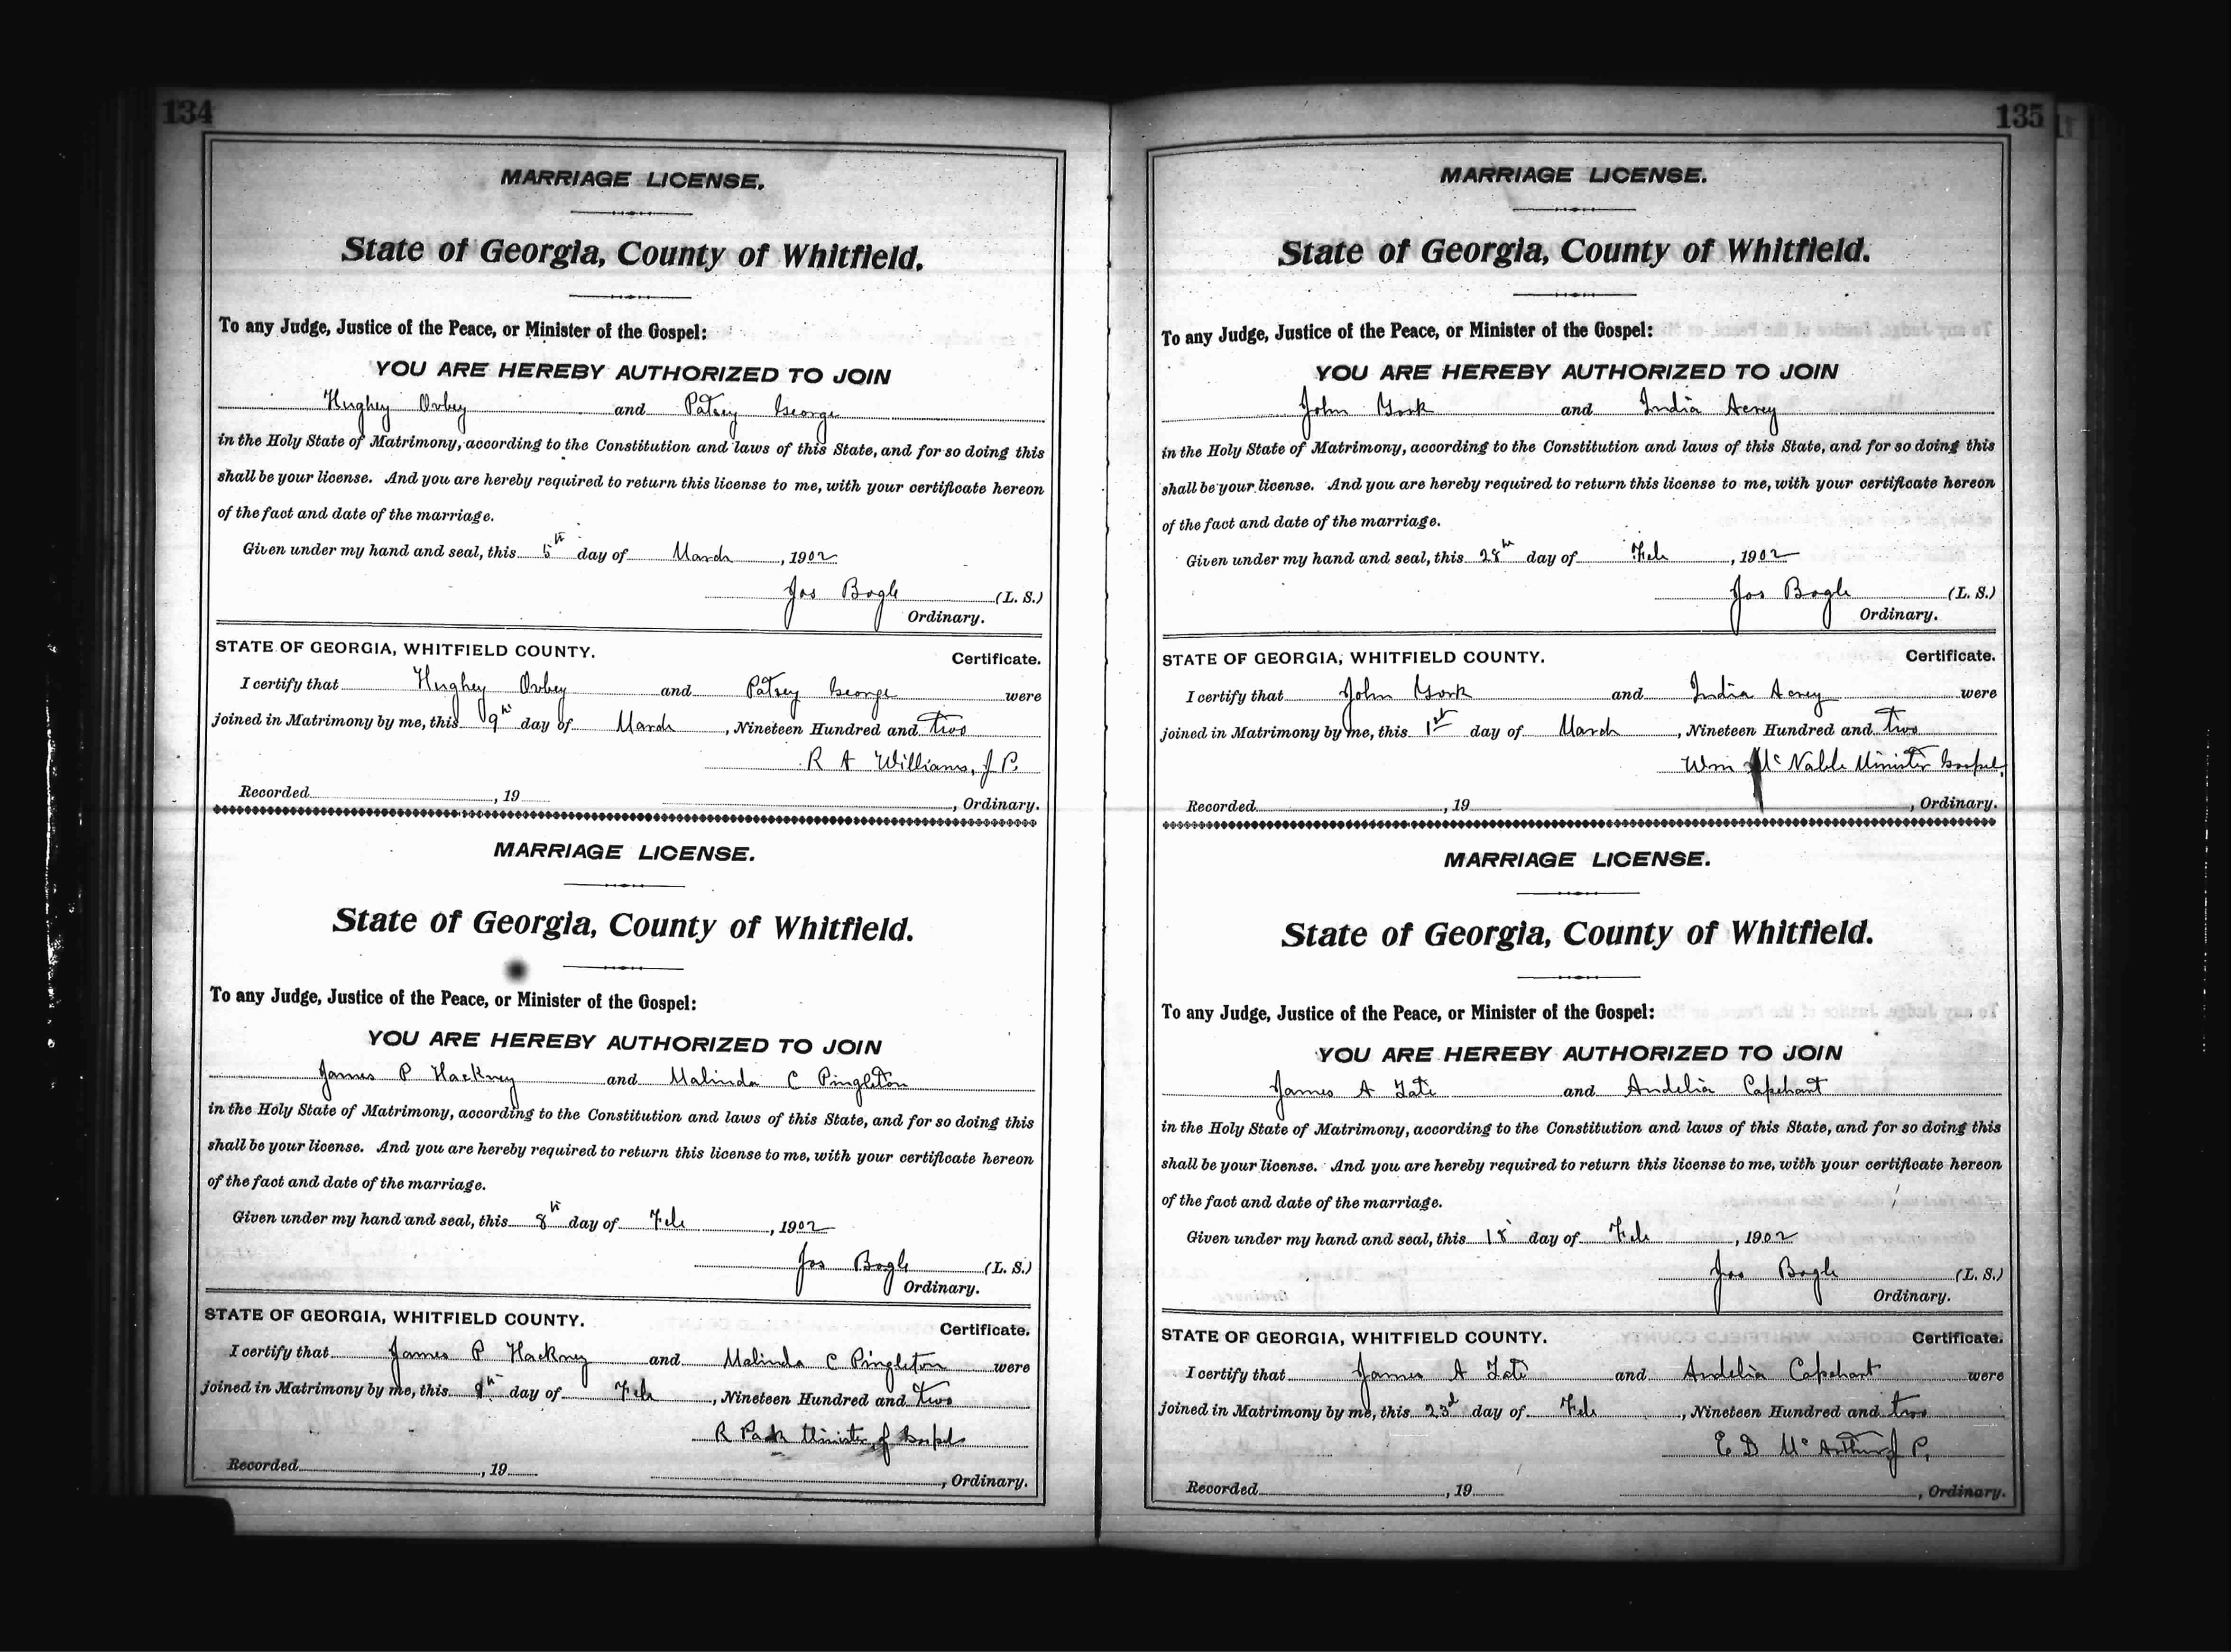 134
MARRIAGE LICENSE.
State of Georgia, County of Whitfield.
To any Judge, Justice of the Peace, or Minister of the Gospel:
YOU ARE HEREBY AUTHORIZED TO JOIN
Hughey Oxbey and Patsey George
in the Holy State of Matrimony, according to the Constitution and laws of this State, and for so doing this
shall be your license. And you are hereby required to return this license to me, with your certificate hereon
of the fact and date of the marriage.
Given under my hand and seal, this 5th day of March, 1902
Jos Bogle (L. S.)
Ordinary.
STATE OF GEORGIA, WHITFIELD COUNTY. Certificate.
I certify that Hughey Oxbey and Patsey George were
joined in Matrimony by me, this 9th day of March, Nineteen Hundred and two
R A Williams, J P.
Recorded, 19 , Ordinary.
MARRIAGE LICENSE.
State of Georgia, County of Whitfield.
To any Judge, Justice of the Peace, or Minister of the Gospel:
YOU ARE HEREBY AUTHORIZED TO JOIN
James P Hackney and Malinda C Pingleton
in the Holy State of Matrimony, according to the Constitution and laws of this State, and for so doing this
shall be your license. And you are hereby required to return this license to me, with your certificate hereon
of the fact and date of the marriage.
Given under my hand and seal, this 8th day of Feb, 1902
Jos Bogle (L. S.)
Ordinary.
STATE OF GEORGIA, WHITFIELD COUNTY. Certificate.
I certify that James P Hackney and Malinda C Pingleton were
joined in Matrimony by me, this 9th day of Feb, Nineteen Hundred and two
R Pack Minister of Gospel
Recorded, 19 , Ordinary.
135
MARRIAGE LICENSE.
State of Georgia, County of Whitfield.
To any Judge, Justice of the Peace, or Minister of the Gospel:
YOU ARE HEREBY AUTHORIZED TO JOIN
John York and India Acrey
in the Holy State of Matrimony, according to the Constitution and laws of this State, and for so doing this
shall be your license. And you are hereby required to return this license to me, with your certificate hereon
of the fact and date of the marriage.
Given under my hand and seal, this 28th day of Feb, 1902
Jos Bogle (L. S.)
Ordinary.
STATE OF GEORGIA, WHITFIELD COUNTY. Certificate.
I certify that John York and India Acrey were
joined in Matrimony by me, this 1st day of March, Nineteen Hundred and two
Wm McNabb Minister Gospel,
Recorded, 19 , Ordinary.
MARRIAGE LICENSE.
State of Georgia, County of Whitfield.
To any Judge, Justice of the Peace, or Minister of the Gospel:
YOU ARE HEREBY AUTHORIZED TO JOIN
James A Tate and Andelia Capehart
in the Holy State of Matrimony, according to the Constitution and laws of this State, and for so doing this
shall be your license. And you are hereby required to return this license to me, with your certificate hereon
of the fact and date of the marriage.
Given under my hand and seal, this 18 day of Feb, 1902
Jos Bogle (L. S.)
Ordinary.
STATE OF GEORGIA, WHITFIELD COUNTY. Certificate.
I certify that James A Tate and Andelia Capehart were
joined in Matrimony by me, this 23d day of Feb, Nineteen Hundred and two
E D McArthur J P.
Recorded, 19 , Ordinary.